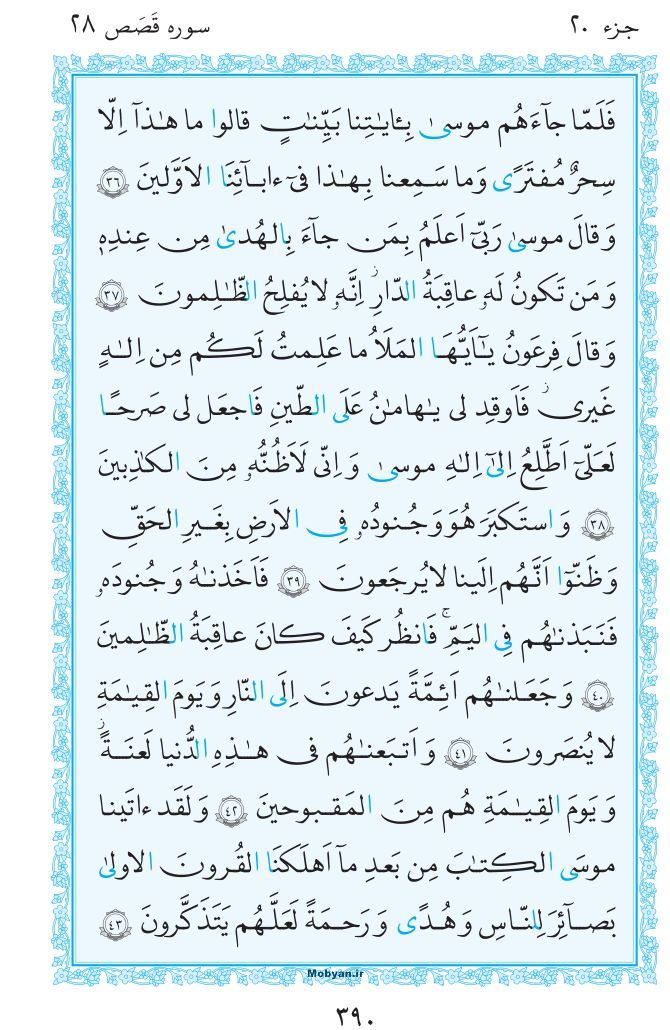 جزء ۲۰
سوره قَصَص ۲۸
فَلَمّا جآءَهُم موسىٰ بِـٔايـٰتِنا بَيِّنـٰتٍ قالوا ما هـٰذآ اِلّا
سِحرٌ مُفتَرًى وَ ما سَمِعنا بِهـٰذا فىٓ ءابآئِنَا الاَوَّلينَ ﴿۳۶﴾
وَ قالَ موسىٰ رَبّىٓ اَعلَمُ بِمَن جآءَ بِالهُدىٰ مِن عِندِهٖ
وَ مَن تَكونُ لَهٗ عاقِبَةُ الدّارِ ۖ اِنَّهٗ لا يُفلِحُ الظّـٰلِمونَ ﴿۳۷﴾
وَ قالَ فِرعَونُ يـٰٓاَيُّهَا المَلَاُ ما عَلِمتُ لَكُم مِن اِلـٰهٍ
غَيرى فَاَوقِد لى يـٰهامـٰنُ عَلَى الطّينِ فَاجعَل لى صَرحًـا
لَعَلّىٓ اَطَّلِعُ اِلىٰٓ اِلـٰهِ موسىٰ وَ اِنّى لَاَظُنُّهٗ مِنَ الكـٰذِبينَ
﴿۳۸﴾ وَ استَكبَرَ هُوَ وَ جُنودُهٗ فِى الاَرضِ بِغَيرِ الحَقِّ
وَ ظَنّوٓا اَنَّهُم اِلَينا لا يُرجَعونَ ﴿۳۹﴾ فَاَخَذنـٰهُ وَ جُنودَهٗ
فَنَبَذنـٰهُم فِى اليَمِّ ۚ فَانظُر كَيفَ كانَ عاقِبَةُ الظّـٰلِمينَ
﴿۴۰﴾ وَ جَعَلنـٰهُم اَئِمَّةً يَدعونَ اِلَى النّارِ وَ يَومَ القِيـٰمَةِ
لا يُنصَرونَ ﴿۴۱﴾ وَ اَتبَعنـٰهُم فى هـٰذِهِ الدُّنيا لَعنَـةً ۖ
وَ يَومَ القِيـٰمَةِ هُم مِنَ المَقبوحينَ ﴿۴۲﴾ وَ لَقَد ءاتَينا
موسَى الكِتـٰبَ مِن بَعدِ مآ اَهلَكنَا القُرونَ الاولىٰ
بَصآئِرَ لِلنّاسِ وَ هُدًى وَ رَحمَةً لَعَلَّهُم يَتَذَكَّرونَ ﴿۴۳﴾
Mobyan.ir
۳۹۰